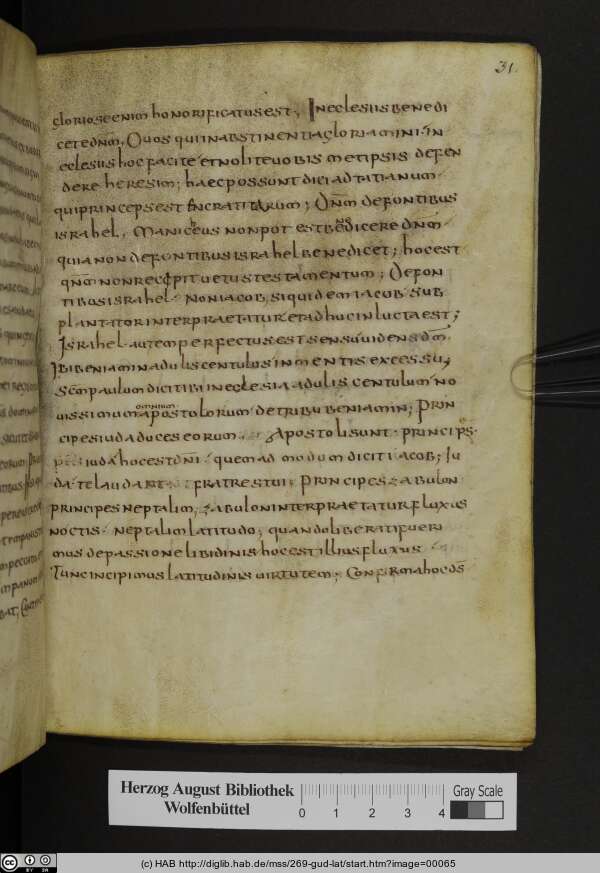 31.
glorioseenim honorificatus est; In eclesiis benedi
cete dn̄m. Quos qui in abstinentia gloriamini. in
eclesiis hoc facite et nolite vobis metipsis defen
dere heresim; haec possunt dici ad tatianum
qui princeps est encratitarum; Dn̄m de fontibus
israhel. Manicheus non pot est benedicere dn̄m.
quia non de fontibus israhel benedicet; hoc est
qn̄o non recępit uetus testamentum; De fon
tibus israhel. non iacob, siquidem iacob sub
plantator interpraetatur. et adhuc in lucta est;
Israhel autem perfectus est sensu uidens dm̄.
Ibi beniamin adulis centulus in mentis excessu;
Scm̄ paulum dicit ibi in eclesia adulis centulum no
uissimum omnium apostolorum de tribu beniamin; Prin
cipes iuda duces eorum. Apostoli sunt principes
iuda hoc est dn̄i. quem ad modum dicit iacob; Iu
da te laudant fratres tui; Principes zabulon
principes neptalim, zabulon interpraetatur fluxus
noctis. neptalim latitudo; quando liberati fueri
mus de passione libidinis hoc est illius fluxus
Tunc incipimus latitudinis uirtutem; Confirma hoc ds̄
Herzog August Bibliothek
Wolfenbüttel
0 1 2 3 4
Gray Scale
(c) HAB http://diglib.hab.de/mss/269-gud-lat/start.htm?image=00065